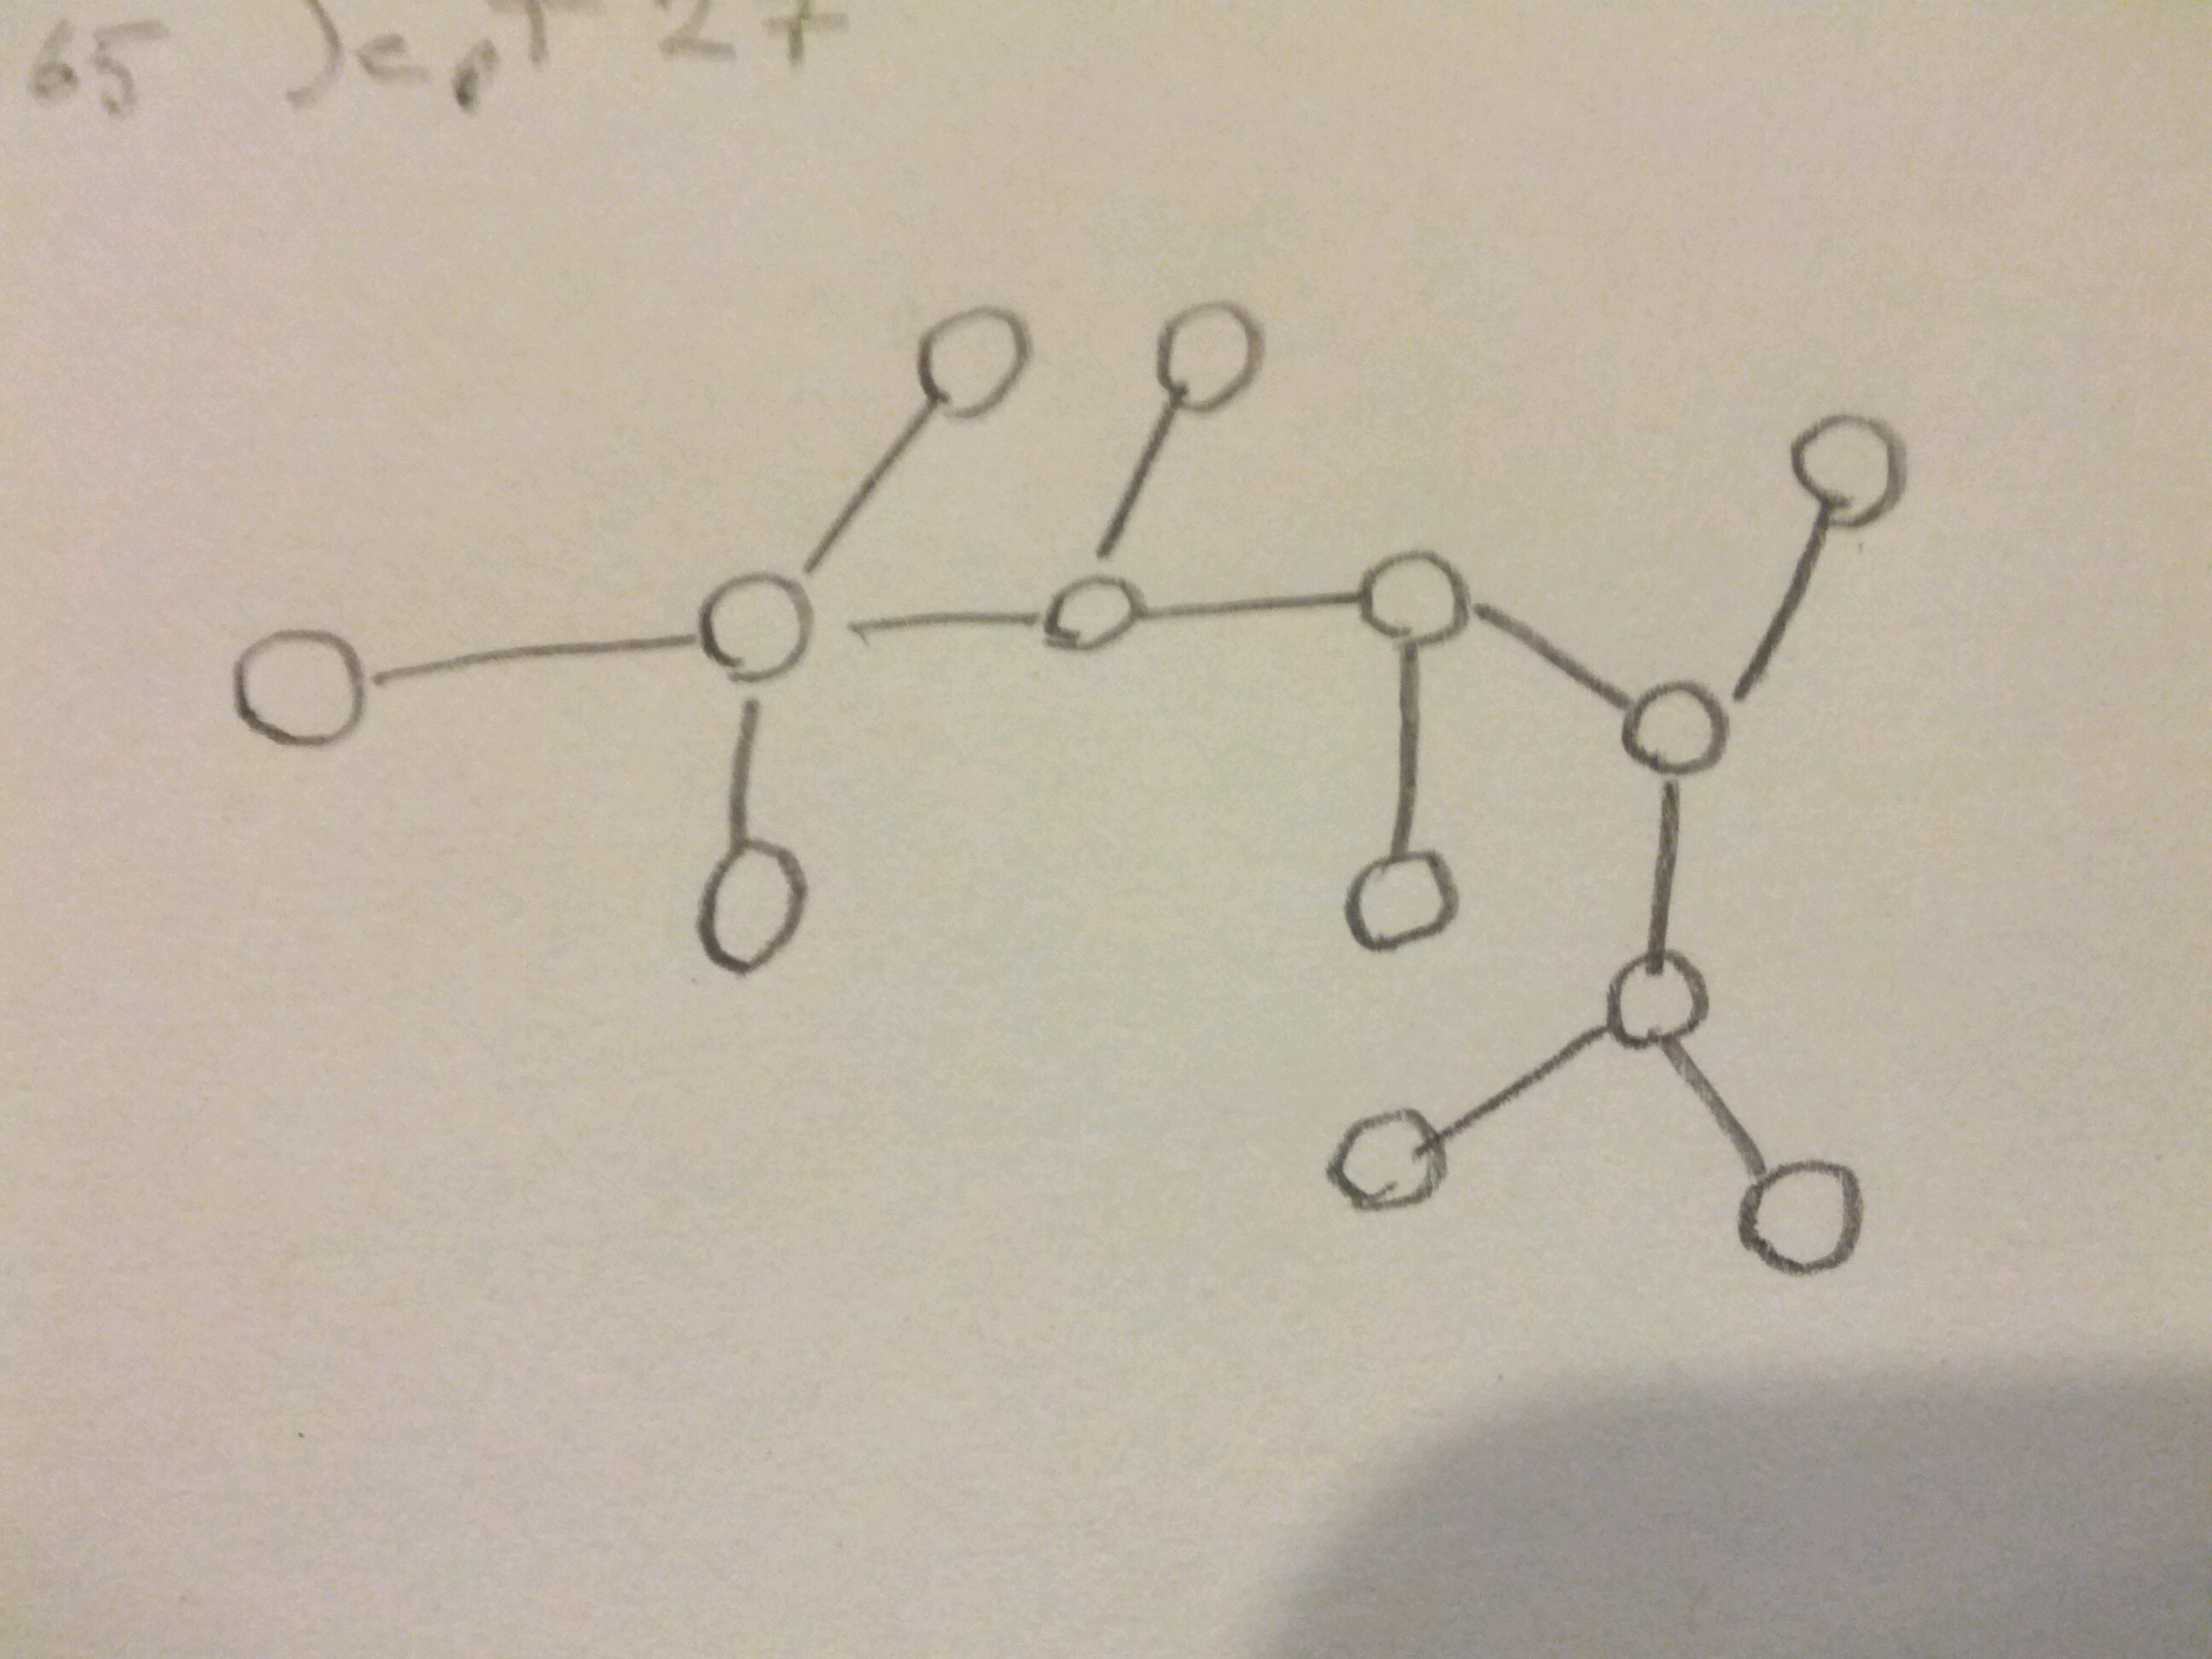 65 Sept 27